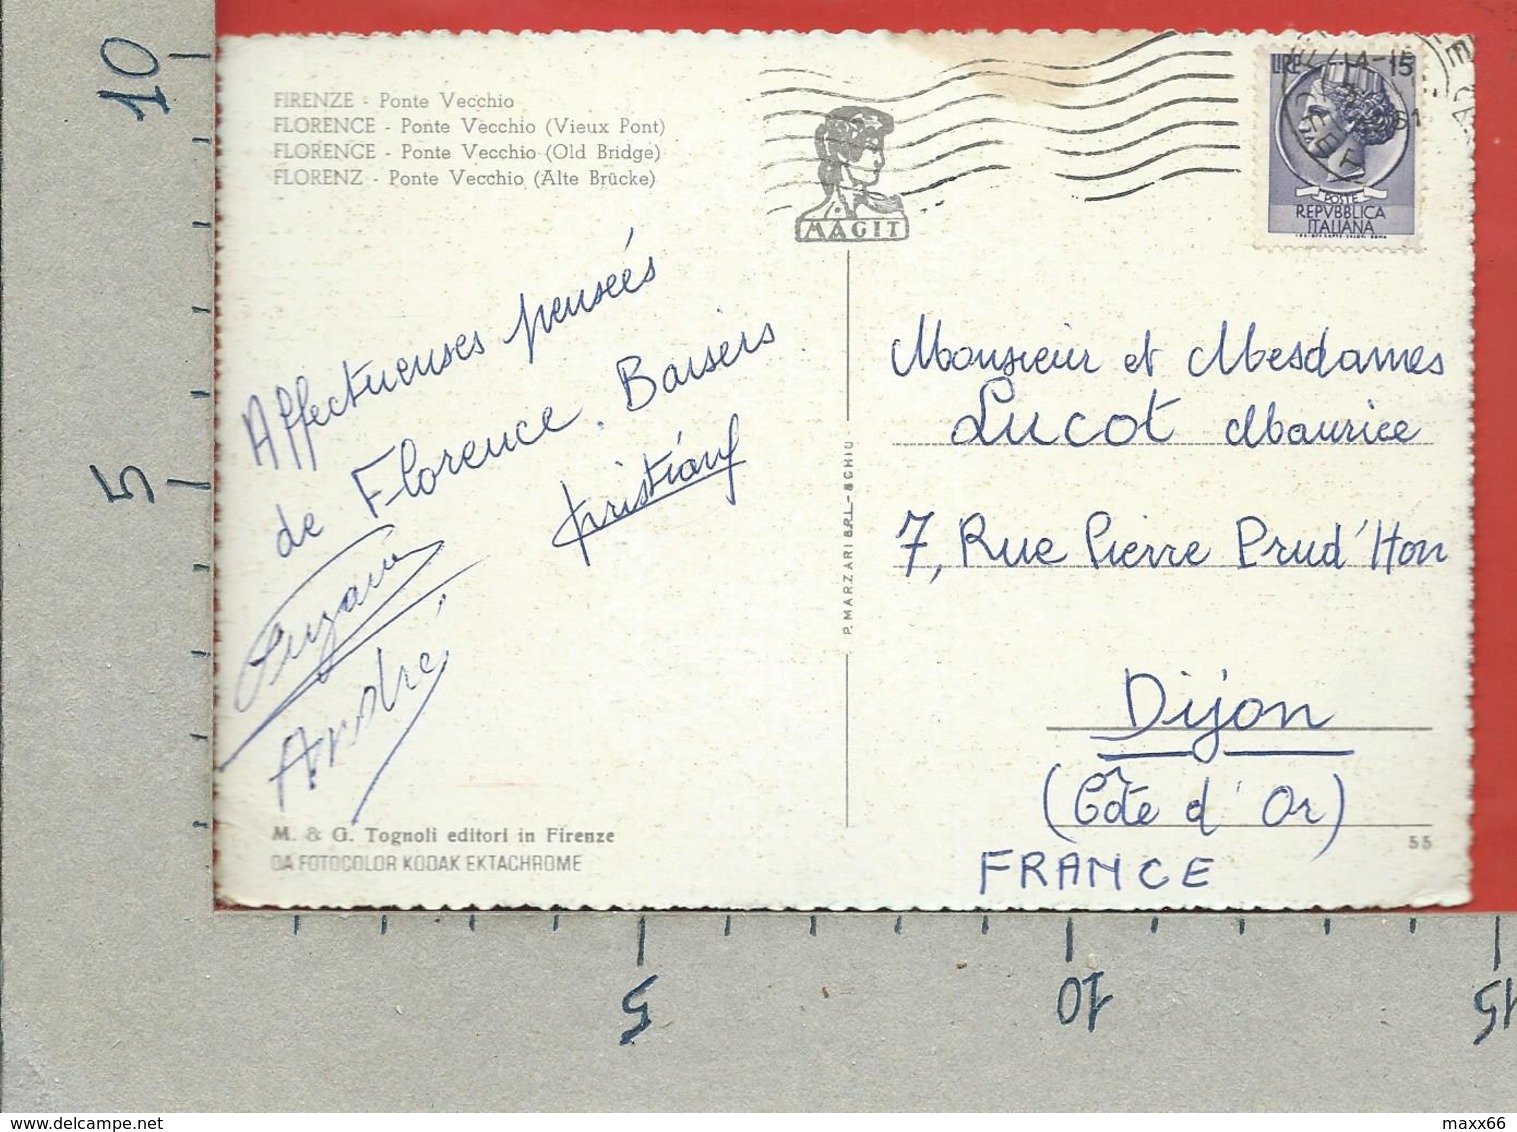 10
5
FIRENZE - Ponte Vecchio
FLORENCE - Ponte Vecchio (Vieux Pont)
FLORENCE - Ponte Vecchio (Old Bridge)
FLORENZ - Ponte Vecchio (Alte Brücke)
MAGIT
LIRE 15
POSTE
REPVBBLICA
ITALIANA
Affectueuses penseés
de Florence. Baisers
André
M. & G. Tognoli editori in Firenze
DA FOTOCOLOR KODAK EKTACHROME
P. MARZARI S.R.L. - SCHIO
Monsieur et Mesdames
Lucot Maurice
7, Rue Pierre Prud'Hon
Dijon
(Côte d'Or)
FRANCE
55
5
10
15
www.delcampe.net
maxx66